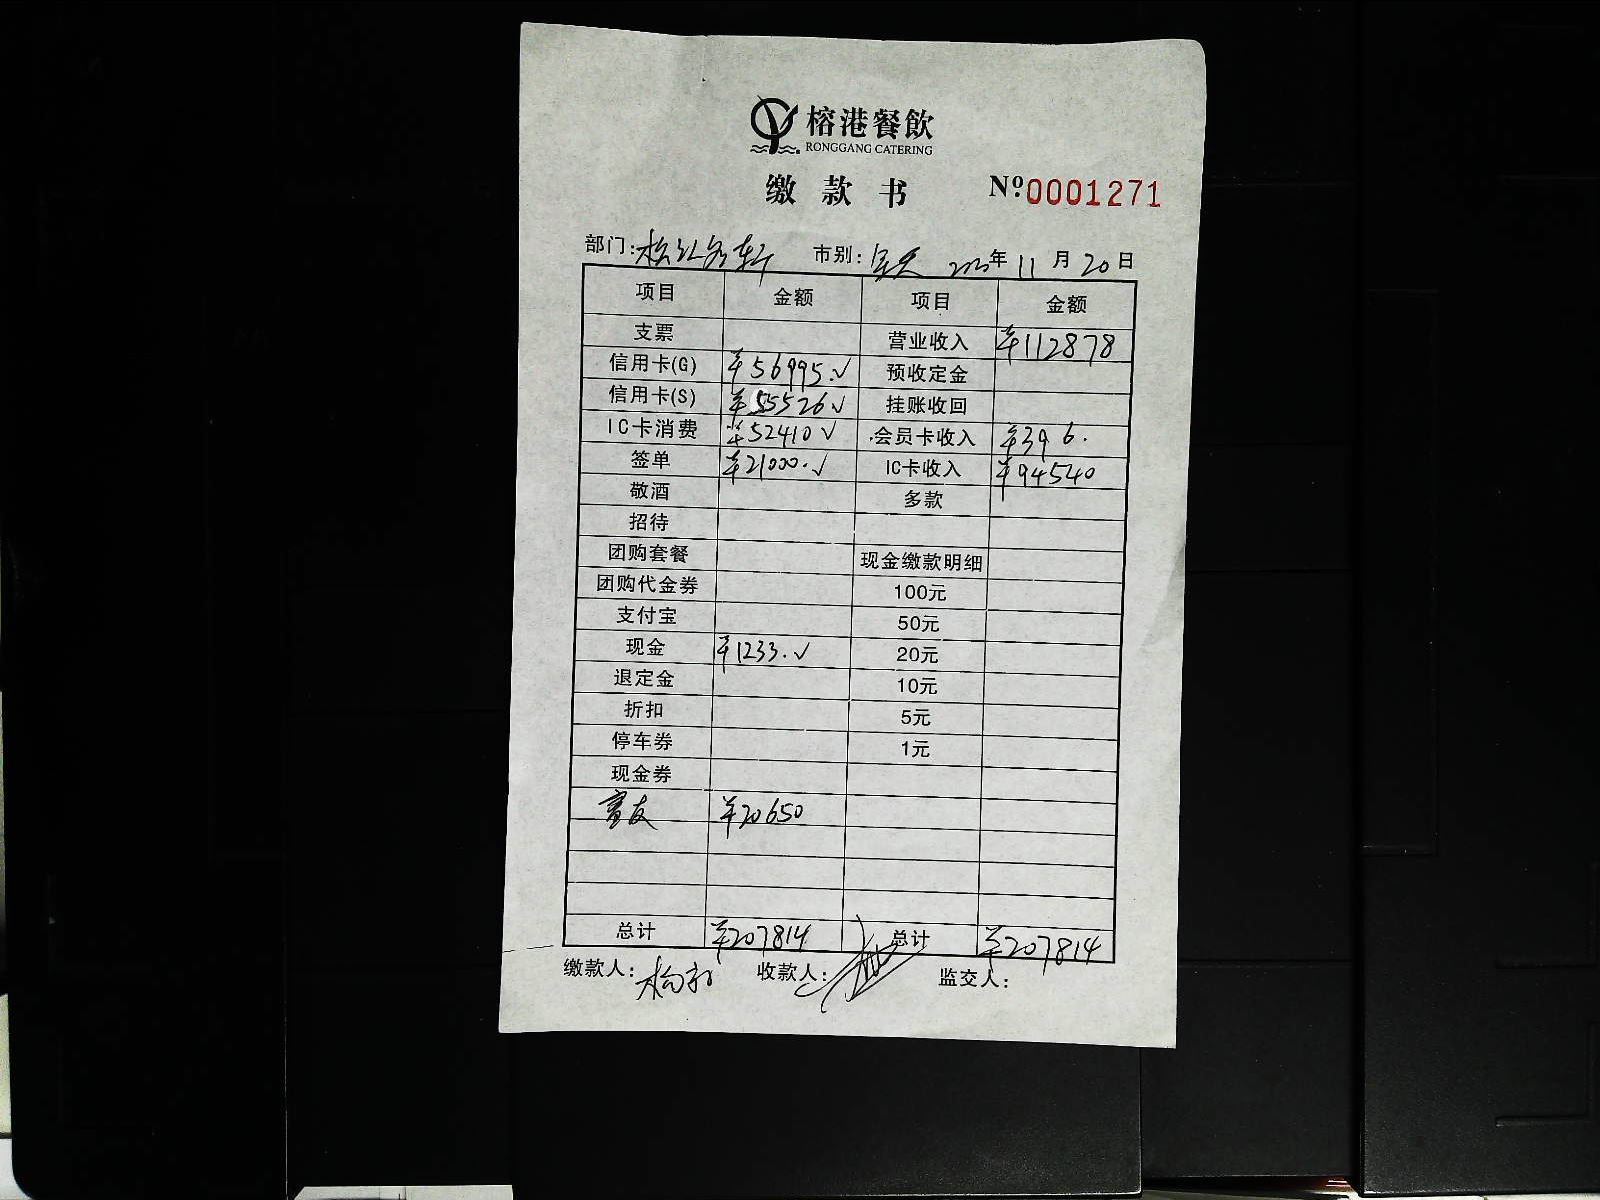 榕港餐飲
RONGGANG CATERING
缴款书 Nº0001271
部门: 市别: 全天 2020年 11月 20日
项目 金额 项目 金额
支票 营业收入 ¥112878
信用卡(G) ¥56995.√ 预收定金
信用卡(S) ¥55526√ 挂账收回
IC卡消费 ¥52410√ 会员卡收入 ¥396.
签单 ¥21000.√ IC卡收入 ¥94540
敬酒 多款
招待
团购套餐 现金缴款明细
团购代金券 100元
支付宝 50元
现金 ¥1233.√ 20元
退定金 10元
折扣 5元
停车券 1元
现金券
¥20650
总计 ¥207814 总计 ¥207814
缴款人: 收款人: 监交人: